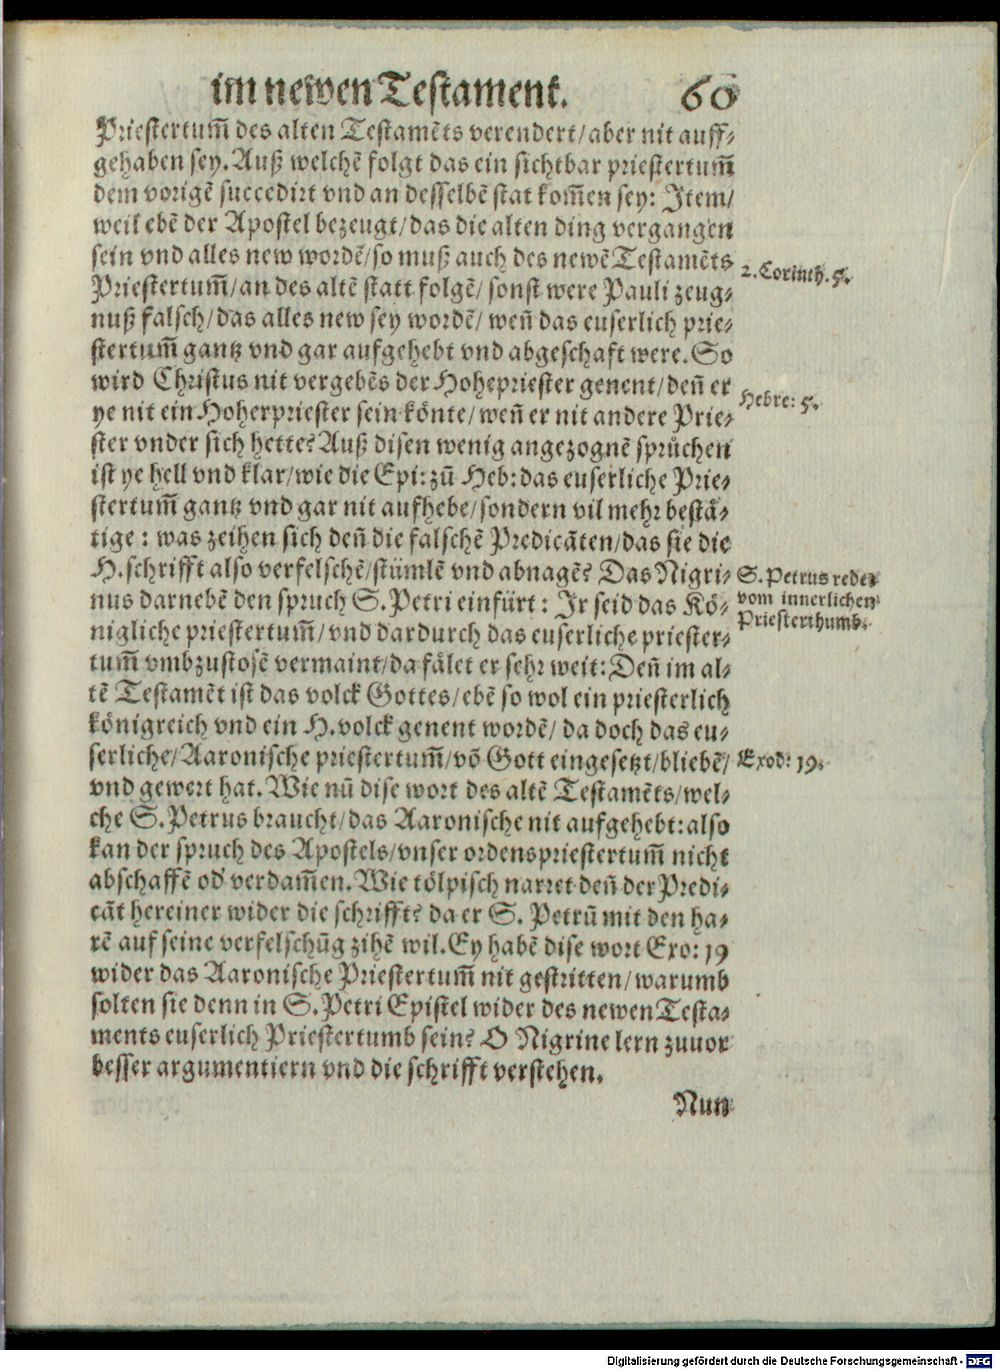 im newen Testament. 60
Priestertum̃ des alten Testamẽts verendert/aber nit auff⸗
gehaben sey. Auß welchẽ folgt das ein sichtbar priestertum̃
dem vorigẽ succedirt vnd an desselbẽ stat kom̃en sey: Item/
weil ebẽ der Apostel bezeugt/das die alten ding vergangen
sein vnd alles new wordẽ/so muß auch des newẽ Testamẽts
2. Corinth. 5.
Priestertum̃/an des altẽ statt folgẽ/sonst were Pauli zeug⸗
nuß falsch/das alles new sey wordẽ/weñ das euserlich prie⸗
stertum̃ gantz vnd gar aufgehebt vnd abgeschaft were. So
wird Christus nit vergebẽs der Hohepriester genent/deñ er
Hebre: 5.
ye nit ein Hoherpriester sein könte/weñ er nit andere Prie⸗
ster vnder sich hette? Auß disen wenig angezognẽ sprůchen
ist ye hell vnd klar/wie die Epi: zũ Heb: das euserliche Prie⸗
stertum̃ gantz vnd gar nit aufhebe/sondern vil mehr bestå⸗
tige: was zeihen sich deñ die falschẽ Predicãten/das sie die
H. schrifft also verfelschẽ/stümlẽ vnd abnagẽ? Das Nigri⸗
S. Petrus redet
vom innerlichen
Priesterthumb.
nus darnebẽ den spruch S. Petri einfürt: Ir seid das Kö⸗
nigliche priestertum̃/vnd dardurch das euserliche priester⸗
tum̃ vmbzustosẽ vermaint/da fålet er sehr weit: Deñ im al⸗
tẽ Testamẽt ist das volck Gottes/ebẽ so wol ein priesterlich
königreich vnd ein H. volck genent wordẽ/da doch das eu⸗
serliche/Aaronische priestertum̃/võ Gott eingesetzt/bliebẽ/
Exod: 19.
vnd gewert hat. Wie nũ dise wort des altẽ Testamẽts/wel⸗
che S. Petrus braucht/das Aaronische nit aufgehebt: also
kan der spruch des Apostels/vnser ordenspriestertum̃ nicht
abschaffẽ od' verdam̃en. Wie tölpisch narret deñ der Predi⸗
cãt hereiner wider die schrifft? da er S. Petrũ mit den ha⸗
rẽ auf seine verfelschũg zihẽ wil. Ey habẽ dise wort Exo: 19
wider das Aaronische Priestertum̃ nit gestritten/warumb
solten sie denn in S. Petri Epistel wider des newen Testa⸗
ments euserlich Priestertumb sein? O Nigrine lern zuuor
besser argumentiern vnd die schrifft verstehen.
Nun
Digitalisierung gefördert durch die Deutsche Forschungsgemeinschaft - DFG